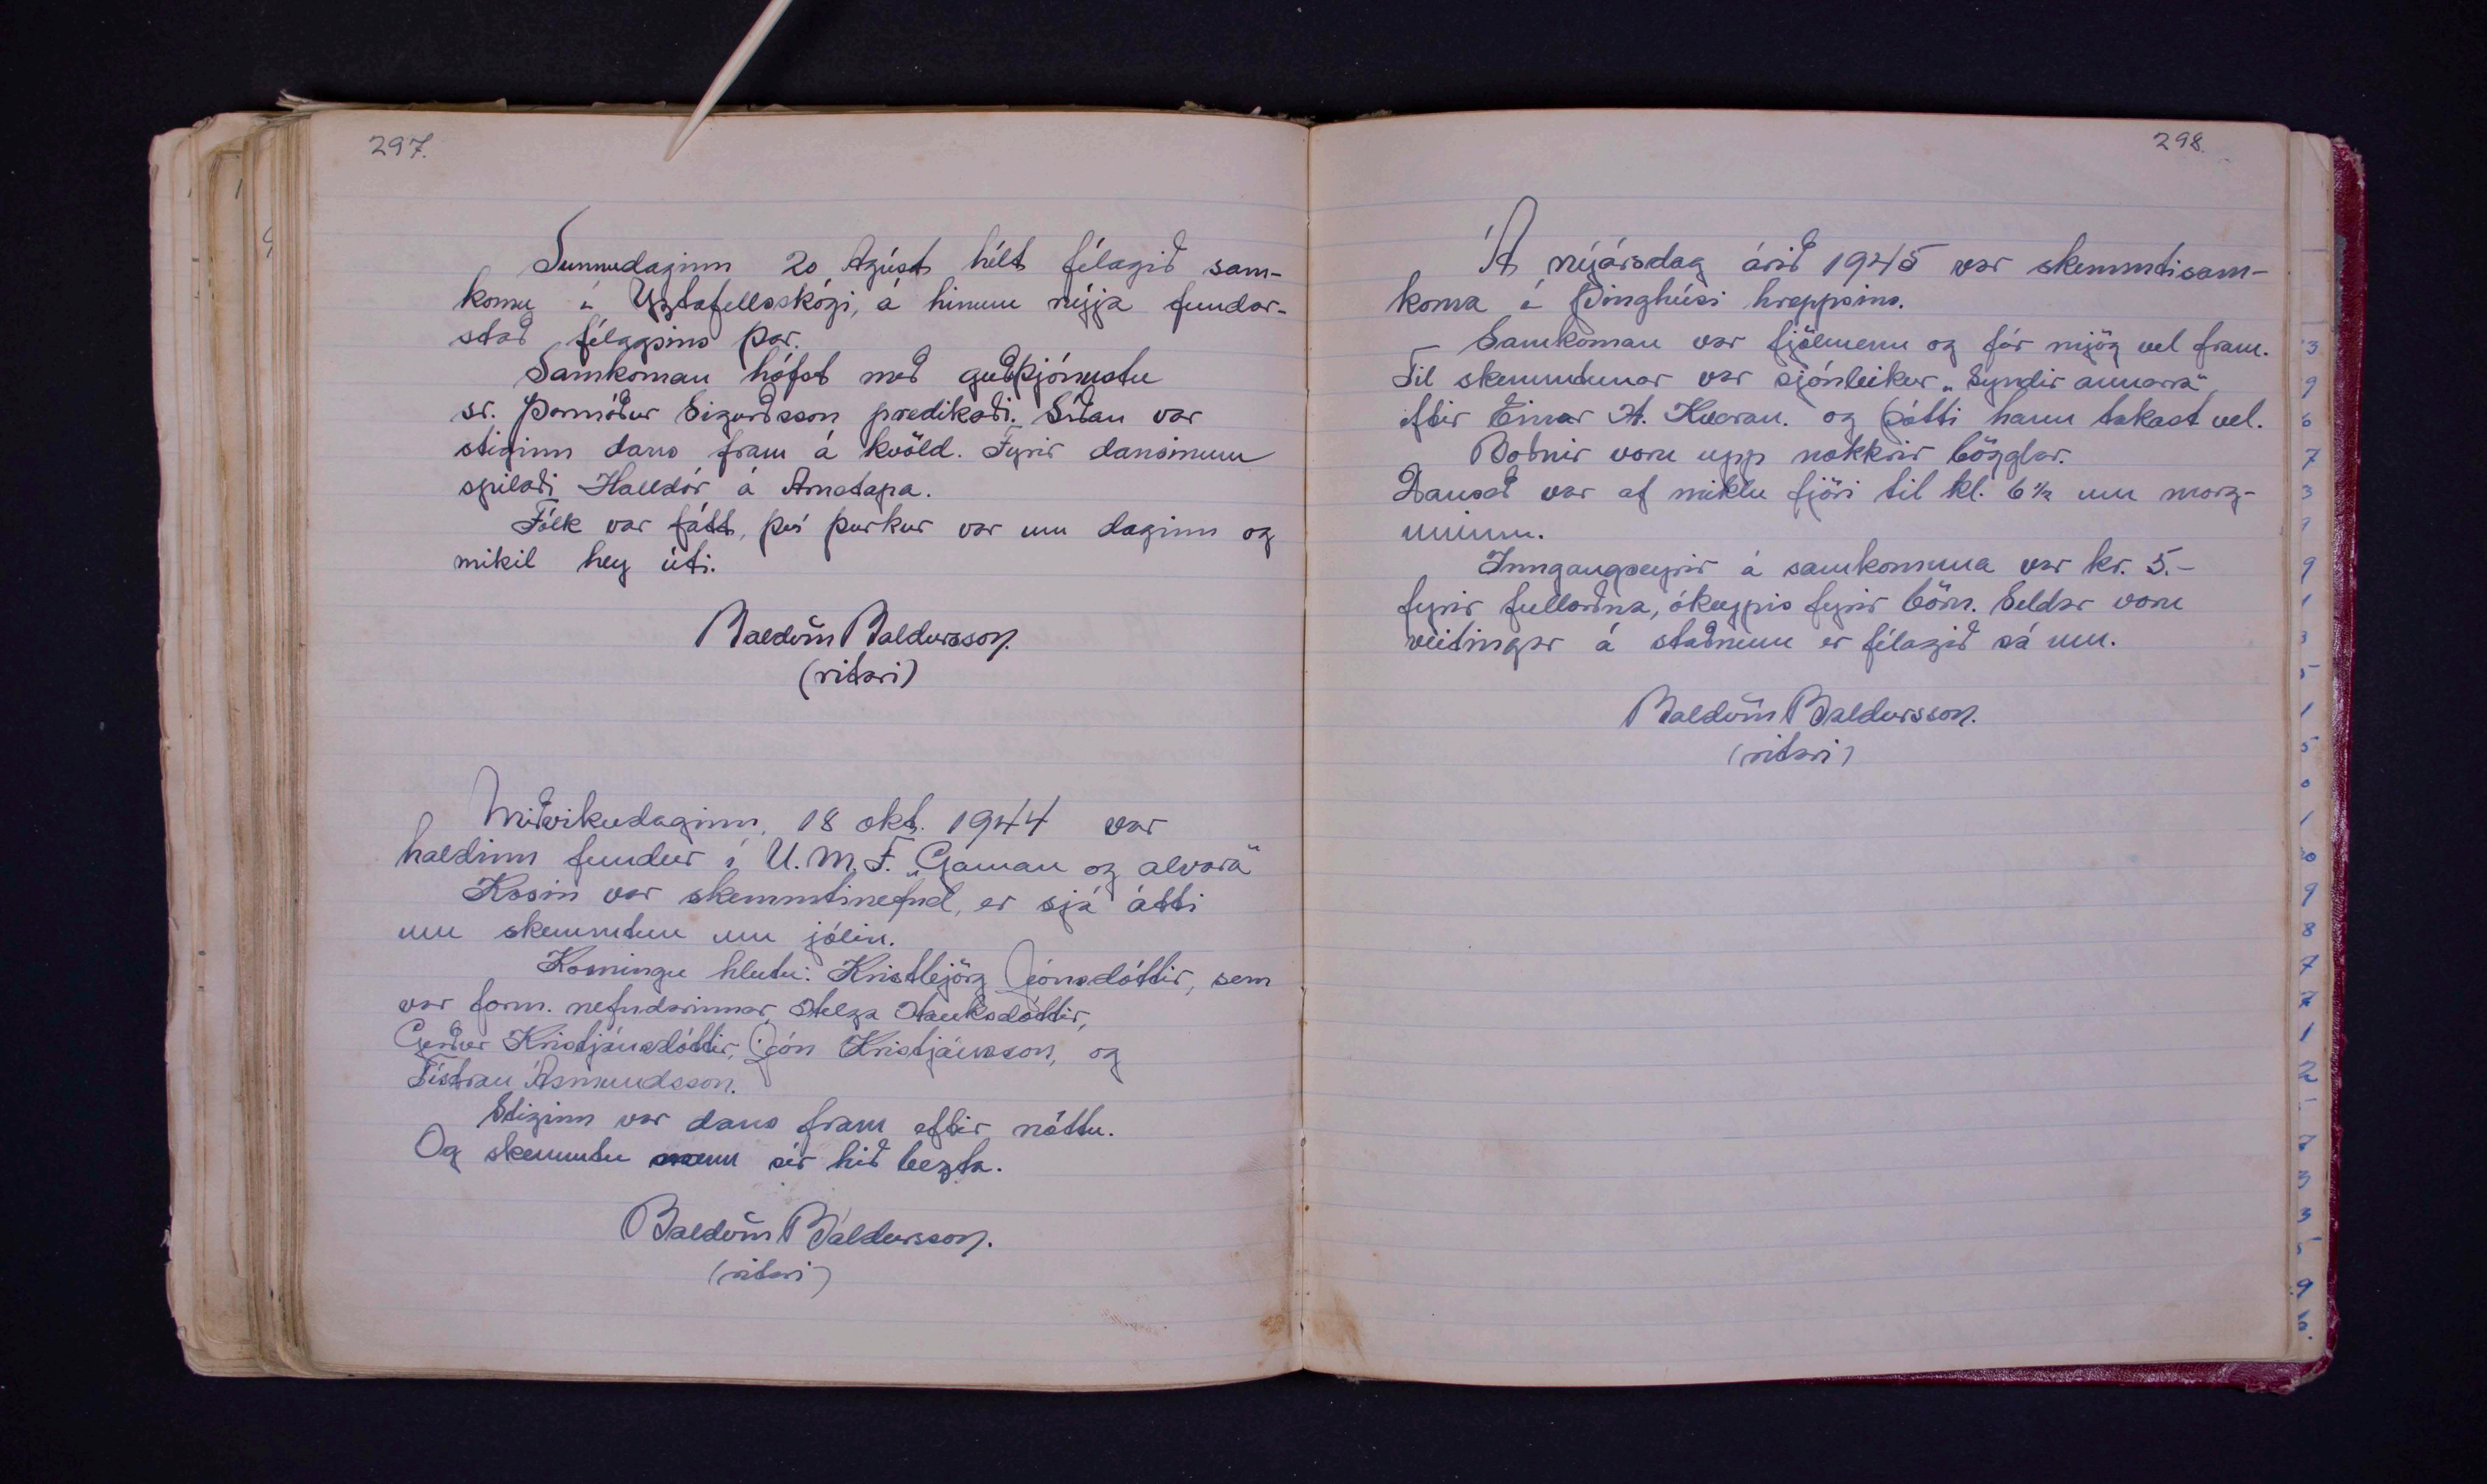 297.
Sunnudaginn 20 Agúst hélt félagið sam-
komu í Yztafellsskógi, á hinum nýja fundar-
stað félagsins þar.
Samkoman hófst með guðþjónustu
sr. Þormóður Sigurðsson predikaði. Síðan var
stiginn dans fram á kvöld. Fyrir dansinum
spilaði Halldór á Arnstapa.
Fólk var fátt, því þurkur var um daginn og
mikil hey úti.
Baldvin Baldursson.
(ritari)
Miðvikudaginn, 18 okt. 1944 var
haldinn fundur í U.M.F. „Gaman og alvara"
Kosin var skemmtinefnd, er sjá átti
um skemmtun um jólin.
Kosningu hlutu: Kristbjörg Jónsdóttir, sem
var form. nefndarinnar, Helga Hauksdóttir,
Gerður Kristjánsdóttir, Jón Kristjánsson, og
Tístran Ásmundsson.
Stiginn var dans fram eftir nóttu.
Og skemmtu menn sér hið bezta.
Baldvin Baldursson.
(ritari)
298.
Á nýjársdag árið 1945 var skemmtisam-
koma í þinghúsi hreppsins.
Samkoman var fjölmenn og fór mjög vel fram.
Til skemmtunar var sjónleikur „Syndir annarra"
eftir Einar H. Kvaran. og þótti hann takast vel.
Boðnir voru upp nokkrir bögglar.
Dansað var af miklu fjöri til kl. 6 1/2 um morg-
uninn.
Inngangseyrir á samkomuna var kr. 5.-
fyrir fullorðna, ókeypis fyrir börn. Seldar voru
veitingar á staðnum er félagið sá um.
Baldvin Baldursson.
(ritari)